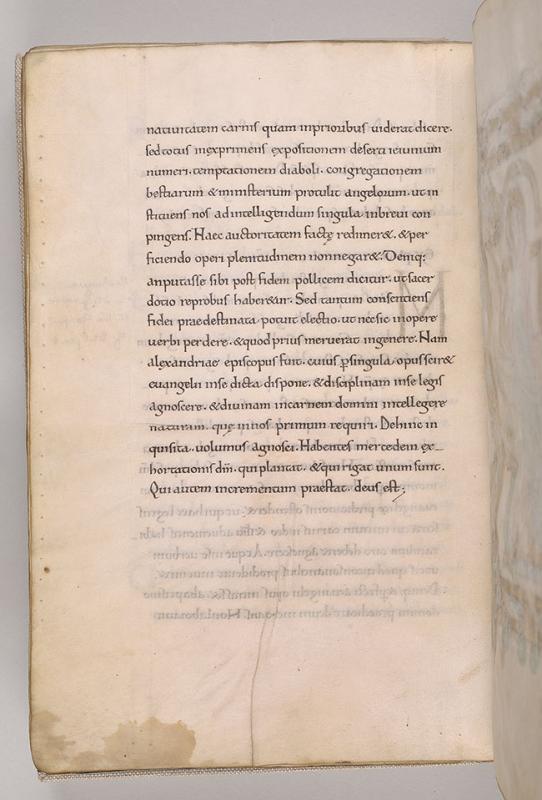 natiuitatem carnis quam inprioribus uiderat dicere.
sed totus inexprimens expositionem deserti ieiunium
numeri. temptationem diaboli. congregationem
bestiarum & ministerium protulit angelorum. ut in
stituens nos ad intellegendum singula inbreui con
pingens. Haec auctoritatem factę redimer&. & per
ficiendo operi plenitudinem non negar&. Deniq:
amputasse sibi post fidem pollicem dicitur. ut sacer
dotio reprobus haber&ur. Sed tantum consentiens
fidei praedestinata potuit electio. ut nec sic inopere
uerbi perdere. & quod prius meruerat ingenere. Nam
alexandriae episcopus fuit. cuius ꝑ singula opus scir&
euangelii inse dicta dispone. & disciplinam inse legis
agnoscere. & diuinam incarnem domini intellegere
naturam. quę innos primum requiri. Dehinc in
quisita. uolumus agnosci. Habentes mercedem ex
hortationis dñi. qui plantat. & qui rigat unum sunt.
Qui autem incrementum praestat. deus est;